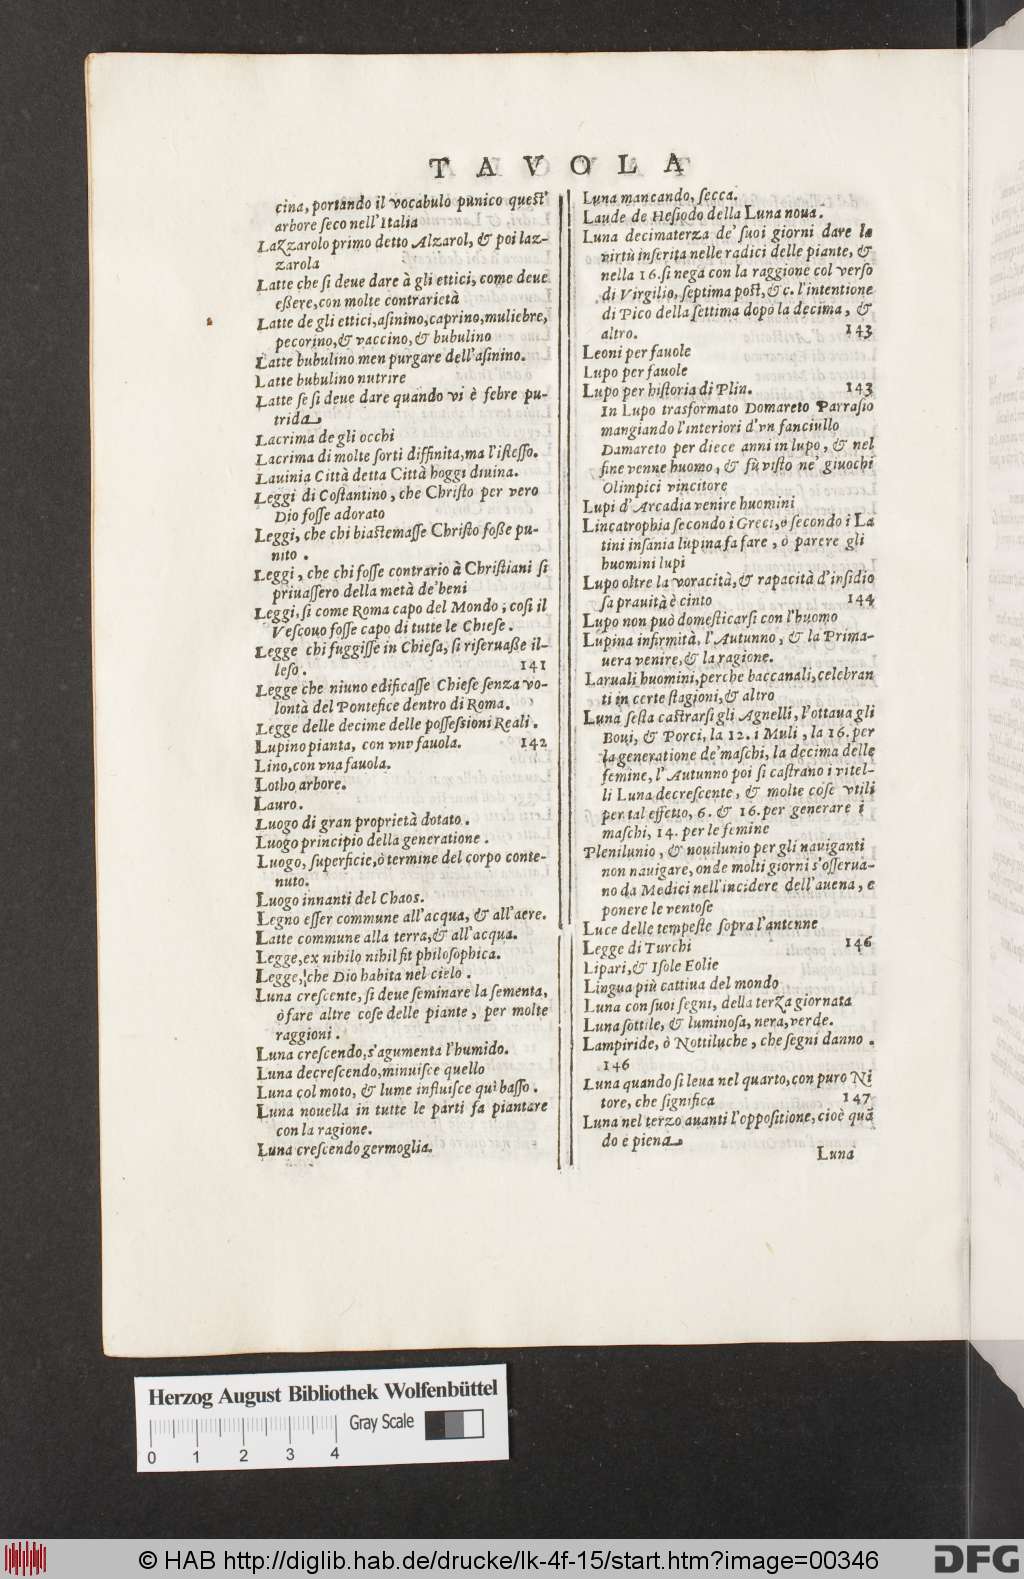 TAVOLA
cina, portando il vocabulo punico quest'
arbore seco nell'Italia
Lazzarolo primo detto Alzarol, & poi laz-
zarola
Latte che si deue dare à gli ettici, come deue
eßere, con molte contrarietà
Latte de gli ettici, asinino, caprino, muliebre,
pecorino, & vaccino, & bubulino
Latte bubulino men purgare dell'asinino.
Latte bubulino nutrire
Latte se si deue dare quando vi è febre pu-
trida
Lacrima de gli occhi
Lacrima di molte sorti diffinita, ma l'istesso.
Lauinia Città detta Città hoggi diuina.
Leggi di Costantino, che Christo per vero
Dio fosse adorato
Leggi, che chi biastemasse Christo foße pu-
nito.
Leggi, che chi fosse contrario à Christiani si
priuassero della metà de' beni
Leggi, si come Roma capo del Mondo; cosi il
Vescouo fosse capo di tutte le Chiese.
Legge chi fuggisse in Chiesa, si riseruaße il-
leso. 141
Legge che niuno edificasse Chiese senza vo-
lontà del Pontefice dentro di Roma.
Legge delle decime delle possessioni Reali.
Lupino pianta, con vnv fauola. 142
Lino, con vna fauola.
Lotho arbore.
Lauro.
Luogo di gran proprietà dotato.
Luogo principio della generatione.
Luogo, superficie, ò termine del corpo conte-
nuto.
Luogo innanti del Chaos.
Legno esser commune all'acqua, & all'aere.
Latte commune alla terra, & all'acqua.
Legge, ex nihilo nihil fit philosophica.
Legge, che Dio habita nel cielo.
Luna crescente, si deue seminare la sementa,
ò fare altre cose delle piante, per molte
raggioni.
Luna crescendo, s'agumenta l'humido.
Luna decrescendo, minuisce quello
Luna col moto, & lume influisce quì basso.
Luna nouella in tutte le parti fa piantare
con la ragione.
Luna crescendo germoglia.
Luna mancando, secca.
Laude de Hesiodo della Luna noua.
Luna decimaterza de' suoi giorni dare la
virtù inserita nelle radici delle piante, &
nella 16. si nega con la raggione col verso
di Virgilio, septima post, & c. l'intentione
di Pico della settima dopò la decima, &
altro. 143
Leoni per fauole
Lupo per fauole
Lupo per historia di Plin. 143
In Lupo trasformato Domareto Parrasio
mangiando l'interiori d'vn fanciullo
Damareto per diece anni in lupo, & nel
fine venne huomo, & fù visto ne' giuochi
Olimpici vincitore
Lupi d'Arcadia venire huomini
Lincatrophia secondo i Greci, ò secondo i La
tini insania lupina fa fare, ò parere gli
huomini lupi
Lupo oltre la voracità, & rapacità d'insidio
sa prauità è cinto 144
Lupo non può domesticarsi con l'huomo
Lupina infirmità, l'Autunno, & la Prima-
uera venire, & la ragione.
Laruali huomini, perche baccanali, celebran
ti in certe stagioni, & altro
Luna sesta castrarsi gli Agnelli, l'ottaua gli
Boui, & Porci, la 12. i Muli, la 16. per
la generatione de' maschi, la decima delle
femine, l'Autunno poi si castrano i vitel-
li Luna decrescente, & molte cose vtili
per tal effetto, 6. & 16. per generare i
maschi, 14. per le femine
Plenilunio, & nouilunio per gli nauiganti
non nauigare, onde molti giorni s'osserua-
no da Medici nell'incidere dell'auena, e
ponere le ventose
Luce delle tempeste sopra l'antenne
Legge di Turchi 146
Lipari, & Isole Eolie
Lingua più cattiua del mondo
Luna con suoi segni, della terza giornata
Luna sottile, & luminosa, nera, verde.
Lampiride, ò Nottiluche, che segni danno.
146
Luna quando si leua nel quarto, con puro Ni
tore, che significa 147
Luna nel terzo auanti l'oppositione, cioè quã
do è piena
Luna
Herzog August Bibliothek Wolfenbüttel
Gray Scale
0 1 2 3 4
© HAB http://diglib.hab.de/drucke/lk-4f-15/start.htm?image=00346
DFG